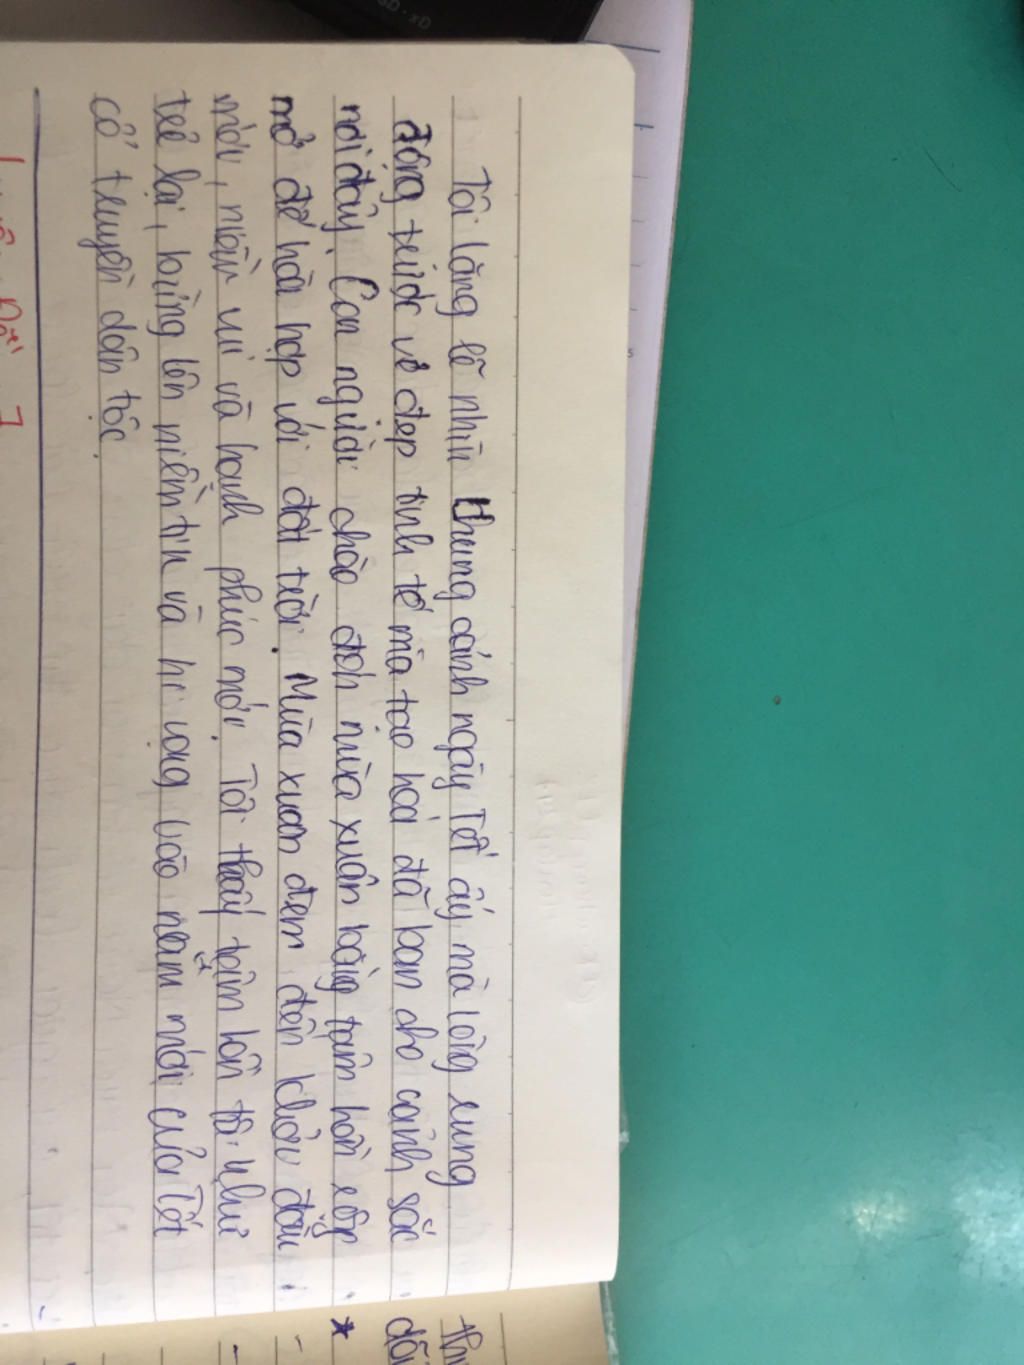 Tôi lặng lẽ nhìn khung cảnh ngày Tết ấy mà lòng rung
động trước vẻ đẹp tinh tế mà tạo hoá đã ban cho cảnh sắc
nơi đây. Con người chào đón mùa xuân bằng tâm hồn rộng
mở để hòa hợp với đất trời. Mùa xuân đem đến khởi đầu
mới, niềm vui và hạnh phúc mới. Tôi thấy tâm hồn tôi như
trẻ lại, bừng lên niềm tin và hi vọng vào năm mới của Tết
cổ truyền dân tộc.